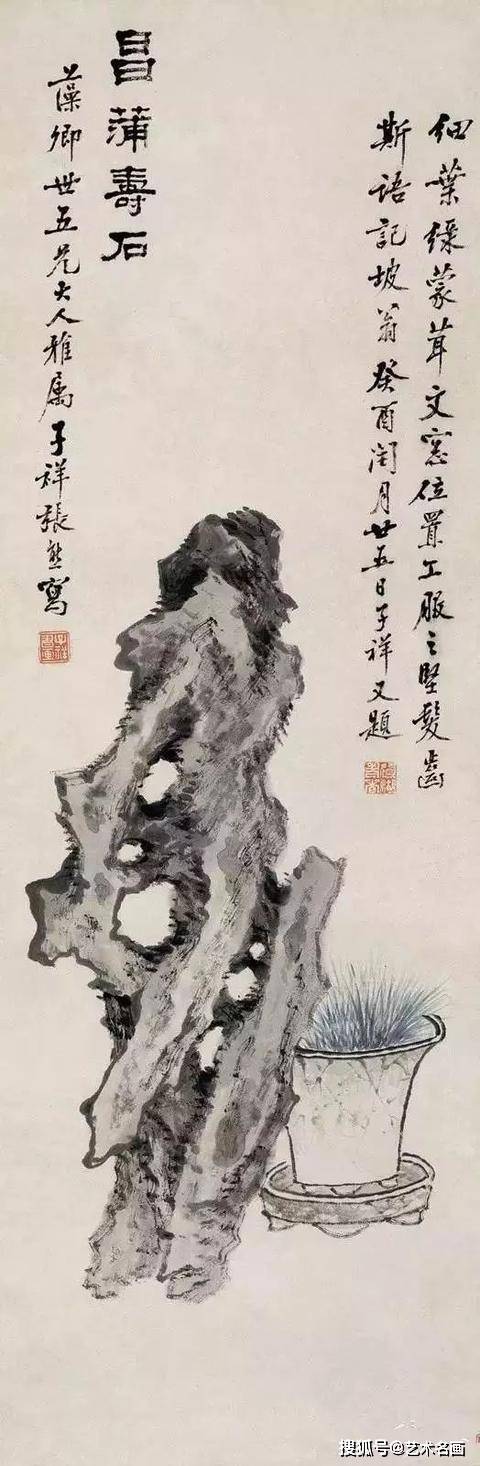 細葉緑蒙茸文窓位置工服之堅髮齒
斯語記坡翁癸酉閏月廿五日子祥又題
昌蒲壽石
藻卿世五兄大人雅属子祥張熊寫
搜狐号@艺术名画